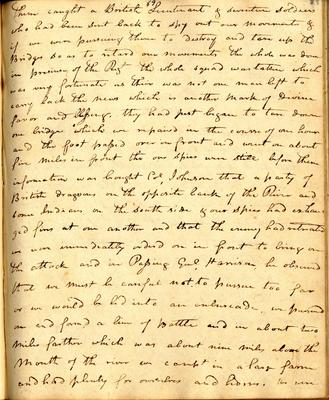 There caught a British Lieutenant & seventeen soldiers
who had been sent back to spy out our movements &
if we were pursuing them to destroy and tear up the
Bridges so as to retard our movements the whole was done
in presence of the Regt the whole squad was taken which
was very fortunate as there was not one man left to
carry back the news which is another mark of Divine
favor and they had just began to tear down
one bridge which we repaired in the course of one hour
and the foot passed over in front and went on about
five miles in front the our spies were still before them
information was bought Col Johnson that a party of
British dragoons on the opposite bank of the River and
some Indians on the south side & our spies had exchan
ged fires at one another and that the enemy had retreated
we were immediately orderd on in front to bring on
the attack and in Passing Genl Harrison he observed
that we must be careful not to pursue too far
or we would be led into an enbuscade we pursued
on and formd a line of Battle and in about two
miles farther which was about nine miles above the
Mouth of the river we campt in a large farm
and had plenty for ourselves and horses we were